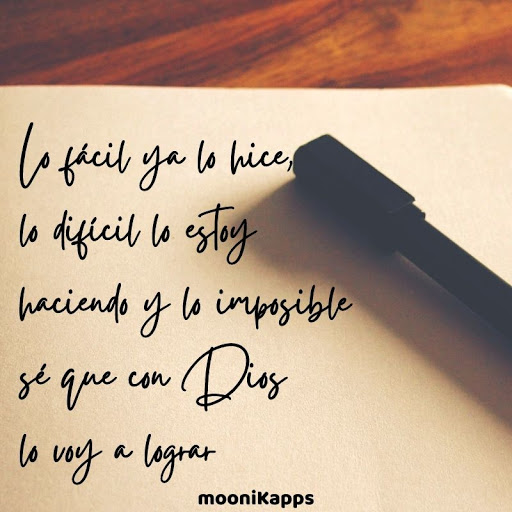 Lo fácil ya lo hice,
lo difícil lo estoy
haciendo y lo imposible
sé que con Dios
lo voy a lograr
mooniKapps